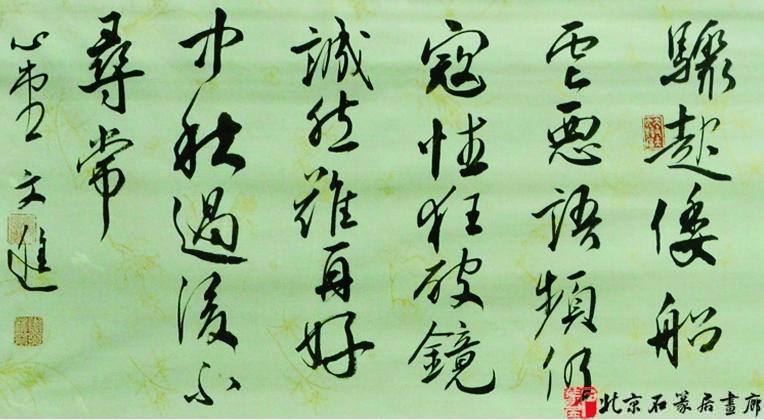 驟起倭船
雲惡語頻仍
寇性狂破鏡
誠然難再好
中秋過後不
尋常
文進
北京石篆居畫廊